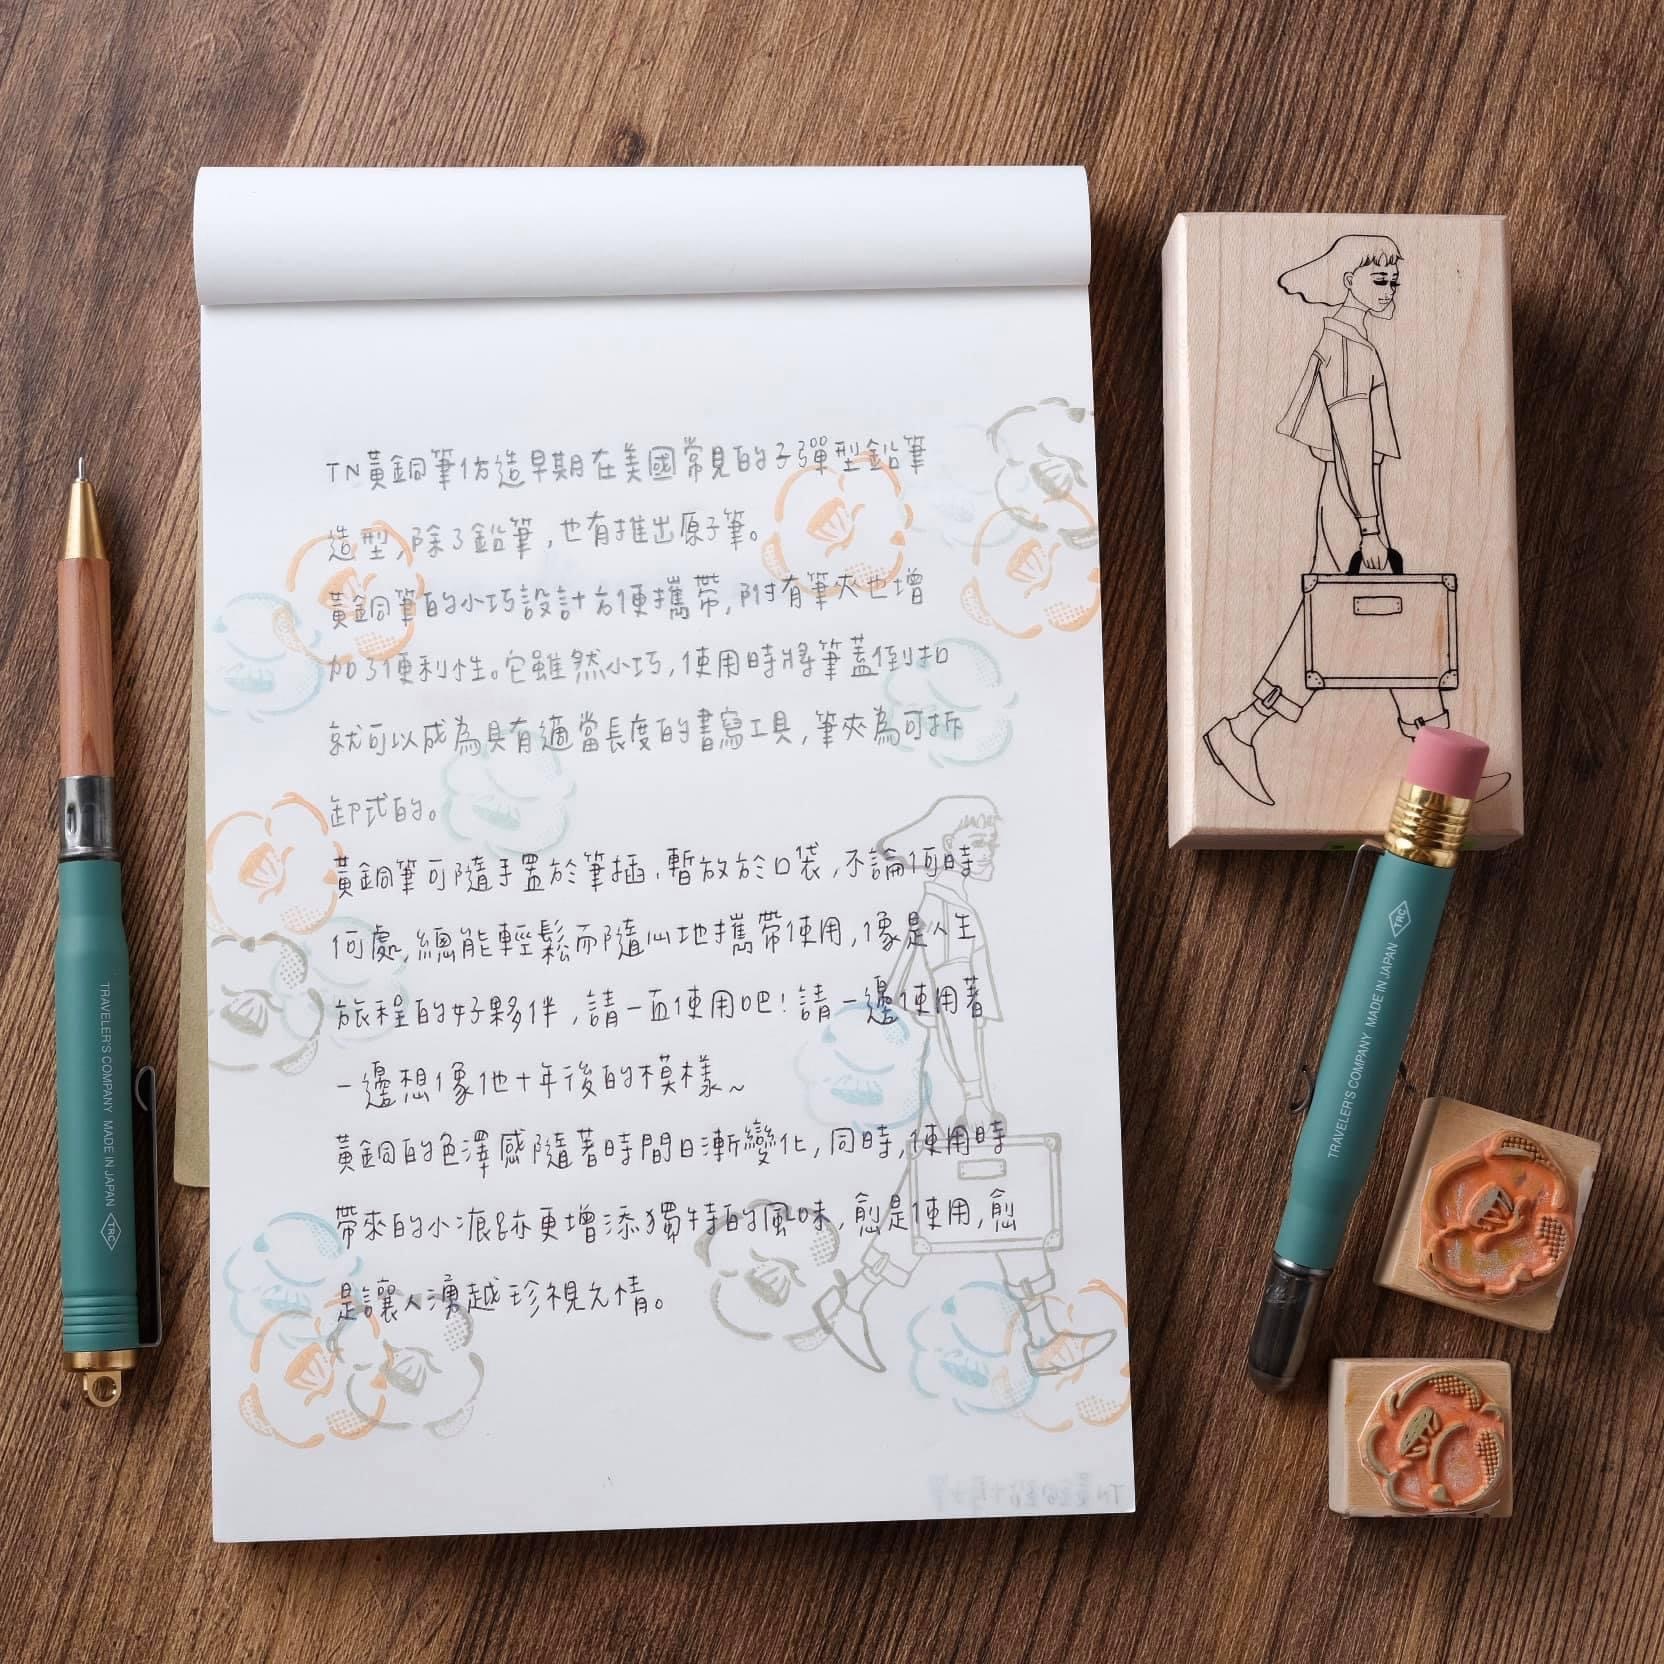 TN黃銅筆仿造早期在美國常見的子彈型鉛筆
造型,除了鉛筆,也有推出原子筆。
黃銅筆的小巧設計方便攜帶,附有筆夾也增
加了便利性。它雖然小巧,使用時將筆蓋倒扣
就可以成為具有適當長度的書寫工具,筆夾為可拆
卸式的。
黃銅筆可隨手置於筆插,暫放於口袋,不論何時
何處,總能輕鬆而隨心地攜帶使用,像是人生
旅程的好夥伴,請一直使用吧!請一邊使用著
一邊想像他十年後的模樣~
黃銅的色澤感隨著時間日漸變化,同時,使用時
帶來的小痕跡更增添獨特的風味,愈是使用,愈
是讓人湧越珍視之情。
TRAVELER'S COMPANY MADE IN JAPAN TRC
TRAVELER'S COMPANY MADE IN JAPAN TRC